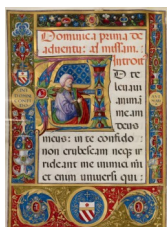 Dominica prima de
adventu: ad missam.
Introit
D te
levavi
animã
meam
deus
meus: in te confido
non erubescam neqz ir
rideant me inimici mi
et enim universi qui